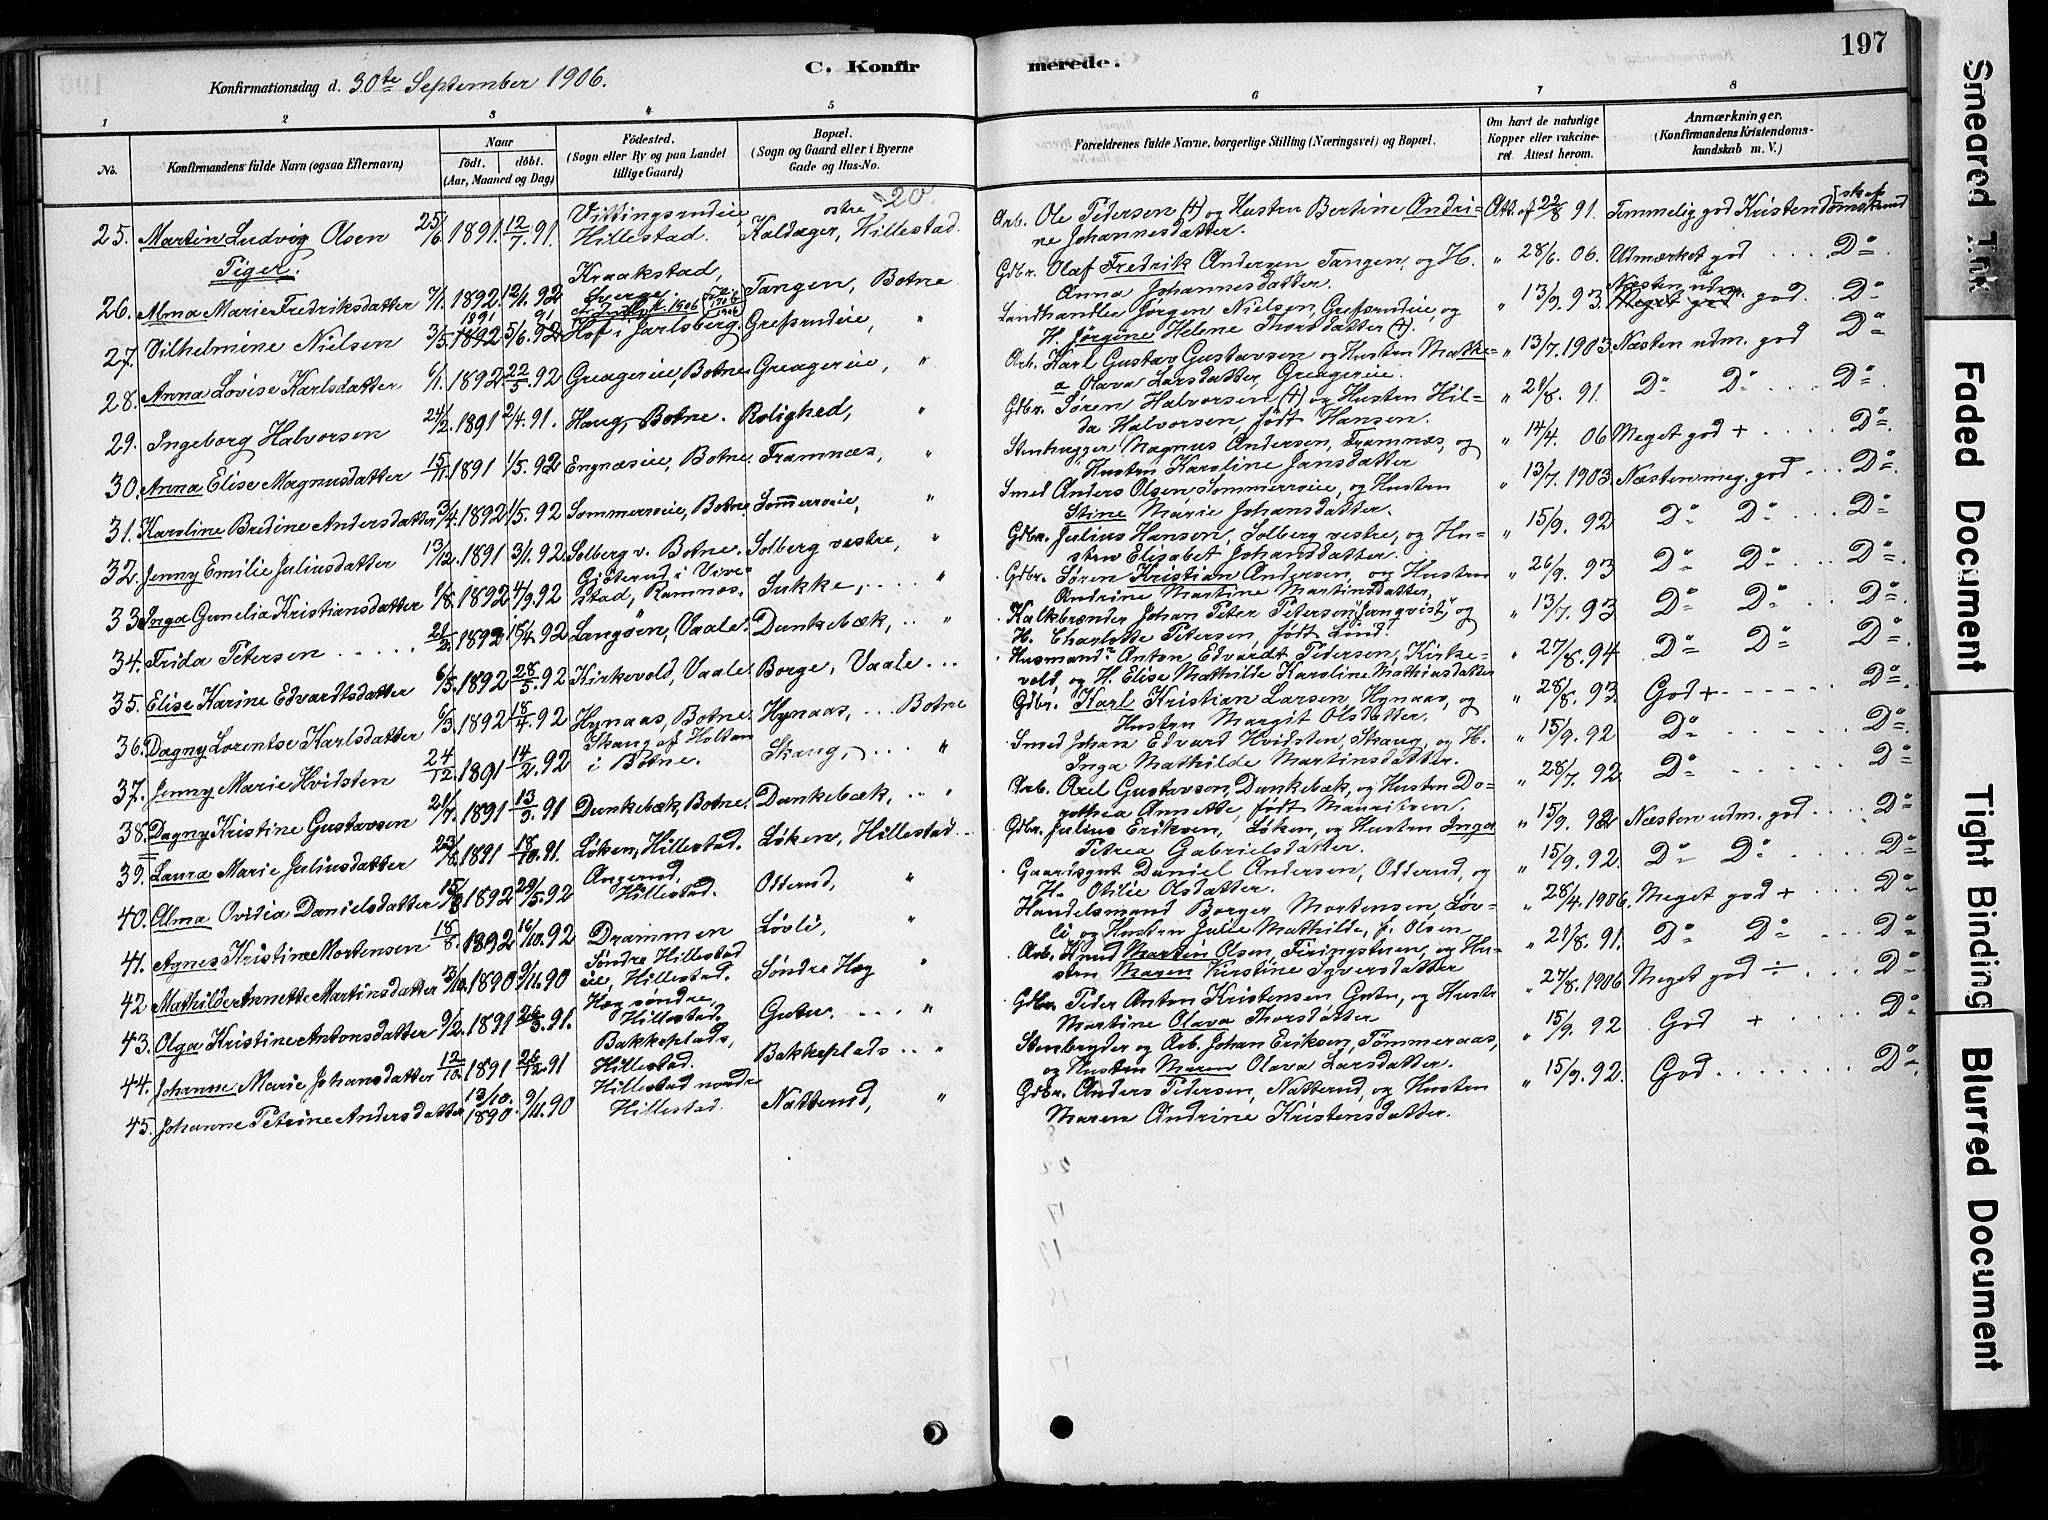 197
C. Konfirmerede.
Konfirmationsdag d. 30te September 1906.
1 2 3 4 5 6 7 8
No. Konfirmandens fulde Navn (ogsaa Efternavn) Naar født. døbt. (Aar, Maaned og Dag) Fødested. (Sogn eller By og paa Landet tillige Gaard) Bopæl. (Sogn og Gaard eller i Byerne Gade og Hus-No. Forældrenes fulde Navne, borgerlige Stilling (Næringsvei) og Bopæl. Om havt de naturlige Kopper eller vakcineret. Attest herom. Anmærkninger, (Konfirmandens Kristendomskundskab m. V.)
20
25. Martin Ludvig Olsen 25/6 1891. 12/7. 91. Hillestad. østre Kaldager, Hillestad. Arb. Ole Pedersen (†) og Hustru Bertine Andrine Johannesdatter. Att. af 22/8 91. Temmelig god Kristendomskundskab
Piger.
26. Alma Marie Fredriksdatter 7/1. 1892. 12/1. 92 Kraakstad, Tangen, Botne Gdbr. Olaf Fredrik Andersen Tangen, og H. Anna Johannesdatter. " 28/6. 06. Udmærket god .... Do
27. Vilhelmine Nielsen 3/5. 1892 1891 5/6. 92 91 Hof i Jarlsberg. Grefsrudeie, " Landhandler Jørgen Nielsen, Grefsrudeie, og H. Jørgine Helene Thorsdatter (†). " 13/9. 93. Næsten udm. god. .. Do
28. Anna Lovise Karlsdatter 6/1. 1892. 22/5. 92 Greagereie, Botne Greagereie, " Arb. Karl Gustav Gustavsen og Hustru Mathea Olava Larsdatter, Greagereie. " 13/7. 1903. Næsten udm. god Do
29. Ingeborg Halvorsen 24/2. 1891 2/4. 91. Haug, Botne. Rolighed, " Gdbr. Søren Halvorsen (†) og Hustru Hilda Halvorsen, født Hansen. " 21/8. 91. Do Do ... Do
30. Anna Elise Magnusdatter 15/11. 1891 1/5. 92 Engnæseie, Botne. Framnæs, " Stenhugger Magnus Andersen, Framnæs, og Hustru Karoline Jansdatter " 14/4. 06 Meget god + .... Do
31. Karoline Bredine Andersdatter 3/4. 1892 1/5. 92 Sommerroeie, Botne. Sommerroeie, " Smed Anders Olsen Sommerroeie, og Hustru Stine Marie Johansdatter. " 13/7. 1903. Næsten meg. god ... Do
32. Jenny Emilie Juliusdatter 13/12. 1891 3/1. 92 Solberg v. Botne. Solberg vestre, " Gdbr. Julius Hansen, Solberg vestre, og Hustru Elisabet Johansdatter. " 15/9. 92 Do Do ... Do
33. Inga Gunelia Kristiansdatter 1/8. 1892 4/9. 92 i Vivestad, Ramnæs. Sukke, .... " Gdbr. Søren Kristian Andersen, og Hustru Andrine Martine Martinsdatter, " 26/9. 93 Do Do ... Do
34. Frida Petersen ..... 21/2. 1892 18/4. 92 Langøen, Vaale. Dunkebæk, .. " Kalkbrænder Johan Peter Petersen "Jungvist", og H. Charlotte Petersen, født Lind. " 13/7. 93 Do Do ... Do
35. Elise Karine Edvardtsdatter 6/5. 1892 28/5. 92 Kirkevold, Vaale Borge, Vaale ... Husmand Anton Edvardt Pedersen, Kirkevold, og H. Elise Mathilde Karoline Mathiasdatter " 27/8. 94 Do Do ... Do
36. Dagny Lorentse Karlsdatter 6/3 1892 18/4. 92 Hynaas, Botne. Hynaas, ... Botne Gdbr. Karl Kristian Larsen Hynaas, og Hustru Margit Olsdatter. " 28/8. 93. God + ------ Do
37. Jenny Marie Hvidsten 24/12. 1891 14/2. 92 Skaug af Holtan i Botne. Skaug, .... " Smed Johan Edvard Hvidsten, Skaug, og H. Inga Mathilde Martinsdatter. " 15/9. 92 Do ...... Do
38. Dagny Kristine Gustavsen 21/7. 1891 13/9. 91 Dunkebæk, Botne. Dunkebæk, .. " Arb. Axel Gustavson, Dunkebæk, og Hustru Dorothea Annette, født Mauritsen. " 28/7. 92. Do ...... Do
39. Laura Marie Juliusdatter 1891 18/10. 91. Løken, Hillestad. Løken, Hillestad.. Gdbr. Julius Eriksen, Løken, og Hustru Inga Petrea Gabrielsdatter. " 15/9. 92 Næsten udm. god ... Do
40. Alma Ovidia Danielsdatter 15/3 1892 29/5. 92 Angerud, Hillestad. Odderud, " Gaardsgut Daniel Andersen, Odderud, og H. Otilie Olsdatter. " 15/9. 92. Do Do ..... Do
41. Agnes Kristine Mortensen 18/8. 1892 16/10. 92 Drammen Løvli, " Handelsmand Borger Mortensen, Løvli, og Hustru Julie Mathilde, f. Olsen " 28/4. 1906. Meget god + .... Do
42 Mathilde Annette Martinsdatter 3/10. 1890 9/11. 90 Søndre Hillestad eie, Hillestad. Søndre Høg " Arb. Knud Martin Olsen, Firingstuen, og Hustru Maren Kirstine Syversdatter " 21/8. 91. Do Do ... Do
43. Olga Kristine Antonsdatter 9/2. 1891 26/3. 91. Høg søndre, Hillestad. Gutu. .... " Gdbr. Peder Anton Kristensen, Gutu, og Hustr. Martine Olava Thorsdatter " 27/8. 1906 Meget god ÷ ... Do
44. Johanne Marie Johansdatter 12/10. 1891 26/12. 91 Bakkeplads, Hillestad. Bakkeplads .. " Stenbryder og Arb. Johan Eriksen, Tømmeraas, og Hustru Maren Olava Larsdatter. " 15/9. 92 God + ..... Do
45. Johanne Petrine Andersdatter 13/10. 1890 9/11. 90 Hillestad nordre Hillestad. Natterud, " Gdbr. Anders Pedersen, Natterud, og Hustru Maren Andrine Kristensdatter. " 15/9. 92. God ....... Do
Smeared Ink
Faded Document
Tight Binding
Blurred Document